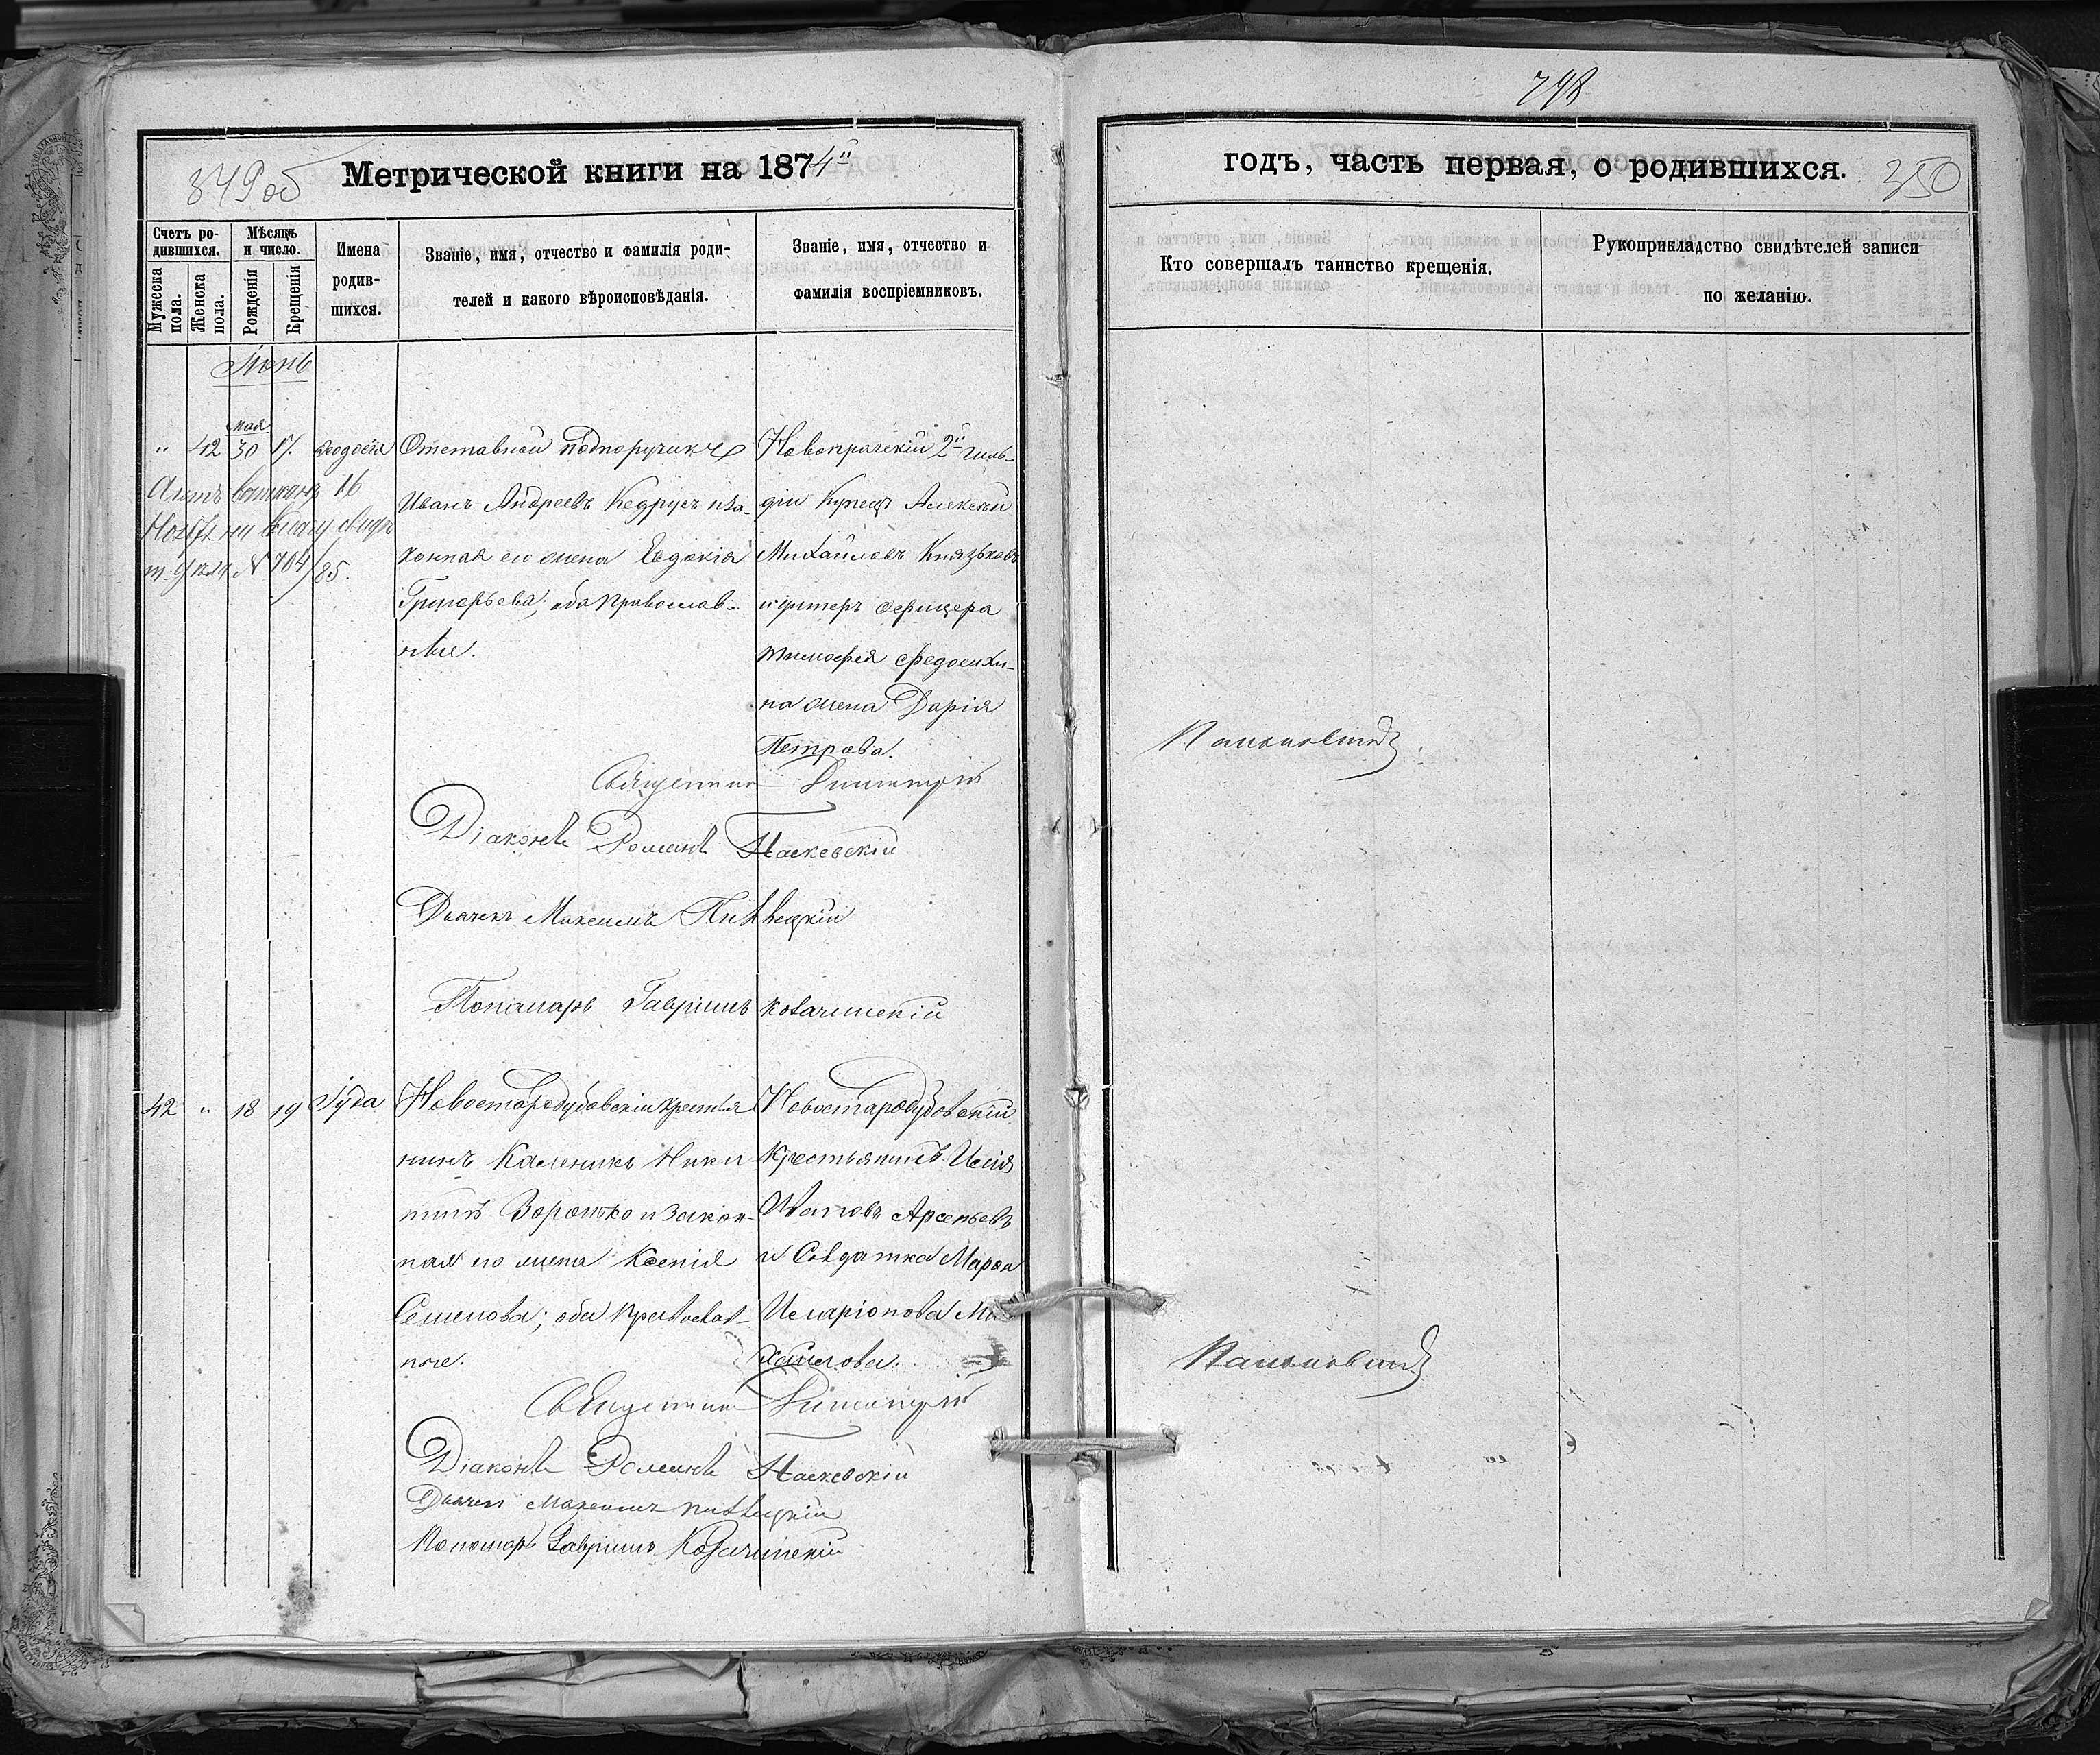 798
349 об
Метрической книги на 1874й
годъ, часть первая, о родившихся.
350
Счетъ ро-
дившихся.
Мѣсяцъ
и число.
Мужеска
пола.
Женска
пола.
Рожденія
Крещенія
Имена
родив-
шихся.
Званіе, имя, отчество и фамилія роди-
телей и какого вѣроисповѣданія.
Званіе, имя, отчество и
фамилія воспріемниковъ.
Кто совершалъ таинство крещенія.
Рукоприкладство свидѣтелей записи
по желанію.
Іюнь
мая
" 42 30 17.
Отставной подпоручикъ
Иванъ Андреевъ Кедрусъ и за-
конная его жена Евдокія
Григорьева; оба православ-
ныя.
16
№ 704/85.
Новопражскій 2й гиль-
діи Купецъ Алексѣй
Михайловъ Князьковъ
и унтеръ офицера
Тимофея Федосихи-
на жена Дарія
Петрова.
Священник Димитрій
Діаконъ Романъ Паскевскій
Дьячекъ Максимъ
Пономарь Гавріилъ Козачинскій
42 " 18 19 Іуда
Новостародубовскій крестья
нинъ Каленикъ Ники
тинъ и закон-
ная его жена Ксенія
Семенова; оба православ-
ные.
Новостародубовскій
крестьянинъ
Арсеньевъ
и Солдатка
Иларіонова Ми
хайлова.
Священник Димитрій
Діаконъ Романъ Паскевскій
Дьячекъ Максимъ
Пономарь Гавріилъ Козачинскій